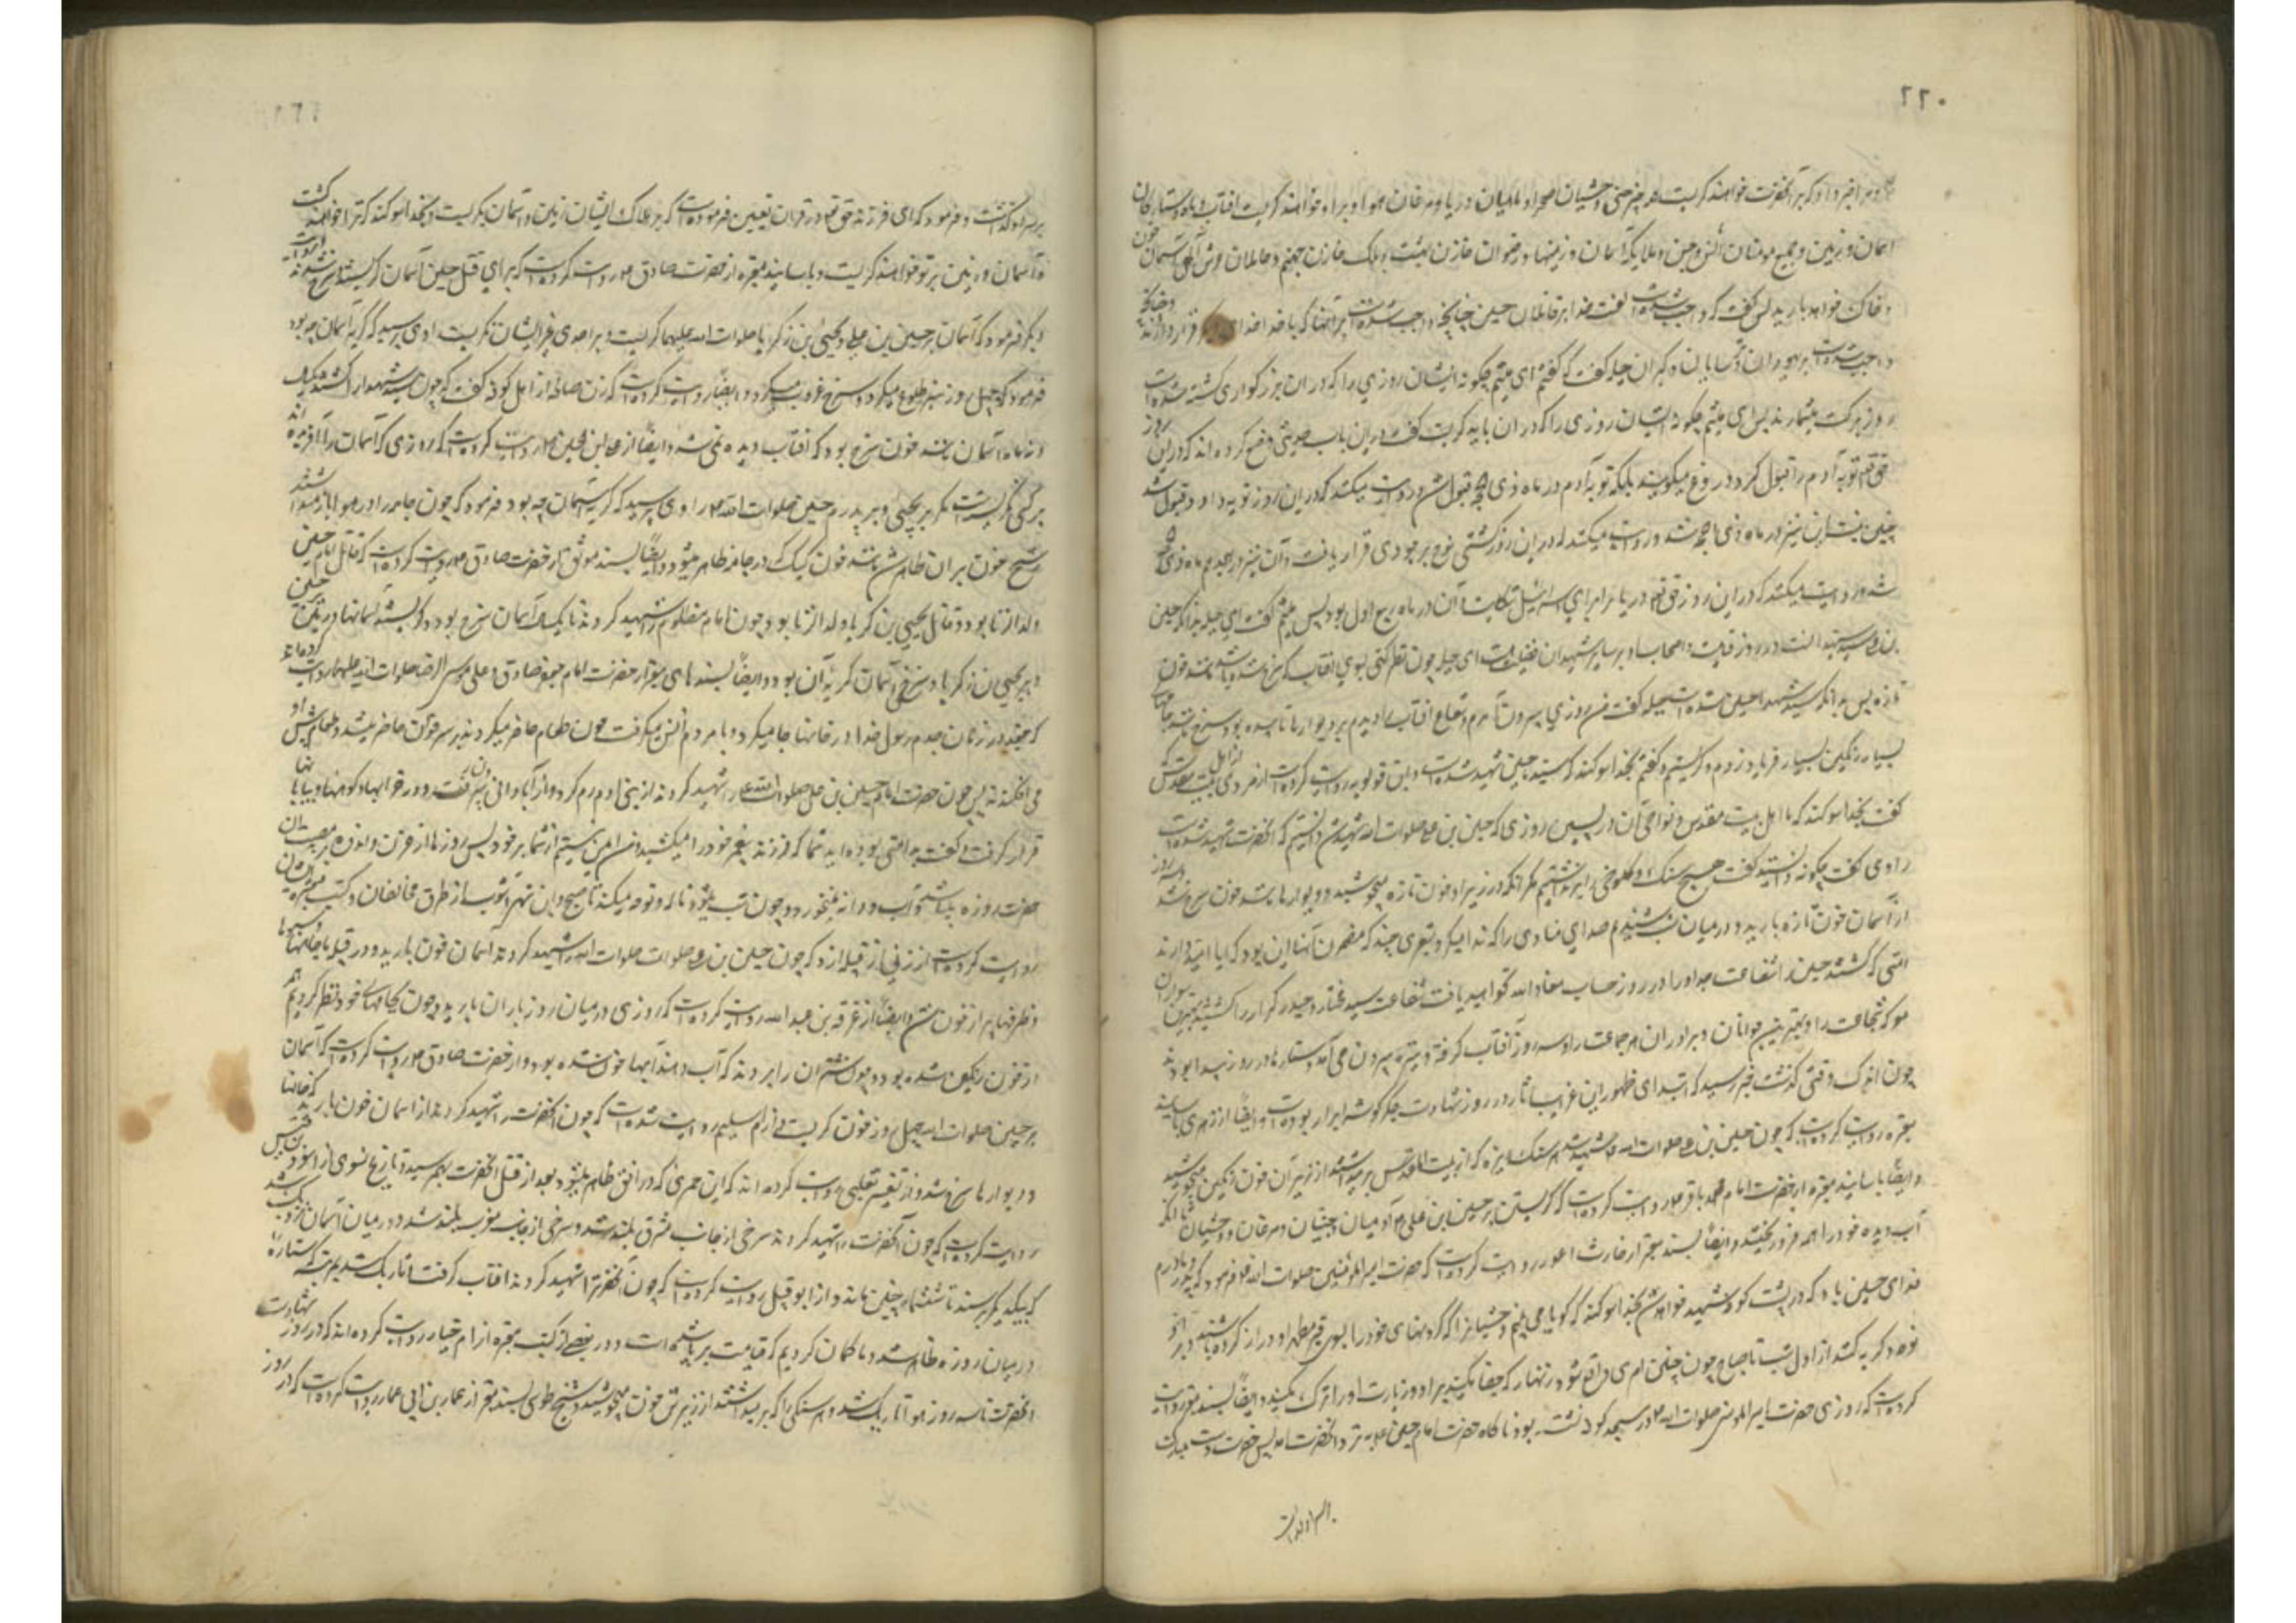 ۲۲۰
خبر داد که بر آنحضرت خواهند گریست هر چیز حتی وحشیان صحرا و ماهیان دریا و مرغان هوا و بر او خواهند گریست افتاب و ماه و ستارکان
اسمان و زمین و جمیع مومنان انس و جن و ملایکه آسمان و زمینها و رضوان خازن بهشت و مالک خازن جهنم و حاملان عرش الهی و آسمان خون
و خاک خواهد بارید پس گفت که واجب شده است لعنت خدا بر قاتلان حسین چنانچه واجب شده است بر آنها که با خدا خدای دیگر قرار داده‌اند و چنانچه
واجب شده است بر یهودان و ترسایان و کبران جبله گفت که گفتم ای میثم چکونه ایشان روزی را که در ان بزرکواری کشته شده است
روز برکت میشمارند پس ای میثم چکونه ایشان روزی را که در ان باید کریست گفت در این باب حدیثی وضع کرده اند که در این روز
حق تعالی توبه آدم را قبول کرد و دروغ میکویند بلکه توبه آدم در ماه ذی الحجه قبول شد و روایت میکنند که در این روز توبه داود قبول شد
چنین نیست این نیز در ماه ذی الحجه شد و روایت میکنند که در این روز کشتی نوح بر جودی قرار یافت و آن نیز در هجدهم ماه ذی الحجه
شد و روایت میکنند که در این روز حق تعالی دریا را برای بنی اسرائیل شکافت و آن در ماه ربیع الاول بود پس میثم گفت ای جبله بدانکه حسین
بن علی سید شهداست در روز قیامت و اصحاب او بر سایر شهیدان فضیلت است ای جبله چون نظر کنی بسوی افتاب که سرخ شده باشد مانند خون
تازه پس بدانکه سید شهدا حسین شهید شده است جبله گفت من روزی بیرون آمدم و شعاع افتاب را دیدم بر دیوارها تابیده بود و سرخ مانند جامهای
بسیار رنگین بسیار فریاد زدم و گریستم و گفتم بخدا سوکند که سید ما حسین شهید شده است و ابن قولویه روایت کرده است از مردی از اهل بیت المقدس که
گفت بخدا سوکند که ما اهل بیت مقدس و نواحی آن در پسین روزی که حسین بن علی صلوات الله شهید شد دانستیم که انحضرت شهید شده است
راوی گفت چکونه دانستید گفت هیچ سنک و کلوخی را برنداشتیم مکر انکه در زیر او خون تازه میجوشید و دیوارها مانند خون سرخ شد و سه روز
از آسمان خون تازه بارید و در میان شب شنیدیم صدای منادی را که ندا میکرد و شعری چند که مضمون آنها این بود که ایا امید دارند
امتی که کشتند حسین را شفاعت جد او را در روز حساب معاذ الله نخواهید یافت شفاعت سید مختار و حیدر کرار را کشتید بهترین سواران
معرکه شجاعت را و بهترین جوانان و برادران هر جماعت را و سه روز آفتاب گرفته و تیره بیرون می آمد و ستارها در روز پیدا بودند
چون اندک وقتی گذشت خبر رسید که ابتدای ظهور این غرایب آثار در روز شهادت جکرکوشه ابرار بوده است و ایضاً از زهری باسانید
معتبره روایت کرده است که چون حسین بن علی صلوات الله شهید شد هر سنک ریزه که از بیت المقدس برمیداشتند از زیر آن خون رنکین میجوشید
و ایضاً باسانید معتبره از حضرت امام محمد باقر ع روایت کرده است که گریستند بر حسین بن علی ع آدمیان و جنیان و مرغان و وحشیان تا آنکه
آب دیده خود را همه فرو ریختند و ایضاً بسند معتبر از حارث اعور روایت کرده است که حضرت امیر المؤمنین صلوات الله فرمود که پدر و مادرم
فدای حسین باد که در پشت کوفه شهید خواهد شد بخدا سوکند که گویا می بینم وحشیانرا که گردنهای خود را بسوی قبر مطهر او دراز کرده باشند و بر او
نوحه و گریه کنند از اول شب تا صباح چون چنین امری واقع شود زنهار که جفا مکنید بر او و زیارت او را ترک مکنید و ایضاً بسند معتبر روایت
کرده است که روزی حضرت امیر المؤمنین صلوات الله در مسجد کوفه نشسته بود ناکاه حضرت امام حسین ع بنزد انحضرت آمد پس حضرت دست مبارک
بر سر او گذاشت و فرمود که ای فرزند حق تعالی در قران تعیین فرموده است که بر هلاک ایشان زمین و اسمان نگریست و بخدا سوکند که ترا خواهند کشت
و آسمان و زمین بر تو خواهند کریست و باسانید معتبره از حضرت صادق ع روایت کرده است که برای قتل حسین آسمان کریست و سرخ شد
دیکر فرمود که آسمان بر حسین بن علی و یحیی بن زکریا صلوات الله علیهما گریست و بر احدی غیر ایشان نگریست راوی پرسید که گریه آسمان چه بود
فرمود که چهل روز سرخ طلوع میکرد و سرخ غروب میکرد و ایضاً روایت کرده است که زن صالحه از اهل کوفه گفت که چون سید شهدا را کشتند یک
و نه ماه آسمان مانند خون سرخ بود که افتاب دیده نمی شد و ایضاً از علی بن الحسین ع روایت کرده است که از روزی که آسمان را آفریده اند
بر کسی نگریست مکر بر یحیی و بر پدرم حسین صلوات الله راوی پرسید که گریه آسمان چه بود فرمود که چون جامه را در هوا باز میداشتند
سرخی خون بر ان ظاهر میشد مانند خون کیک که در جامه ظاهر میشود و ایضاً بسند موثق از حضرت صادق ع روایت کرده است که قاتل امام حسین
ولد الزنا بود و قاتل یحیی بن زکریا ولد الزنا بود و چون امام مظلوم را شهید کردند تا یک سال آسمان سرخ بود و گریستند آسمانها و زمین بر حسین
و بر یحیی بن زکریا و سرخی آسمان گریه آن بود و ایضاً بسندهای معتبر از حضرت امام جعفر صادق و علی بن موسی الرضا صلوات الله علیهما روایت کرده اند
که جغد در زمان جدم رسول خدا در خانها جا میکرد و با مردم انس میگرفت چون طعام حاضر میکردند بر سر خوان حاضر میشد و طعام پیش او
می افکندند پس چون حضرت امام حسین بن علی صلوات الله علیه را شهید کردند از بنی ادم رم کرد و از آبادانی بیرون رفت و در خرابها و کوهها و بیابانها
قرار گرفت و گفت بد امتی بوده اید شما که فرزند پیغمبر خود را میکشید و من ایمن نیستم از شما بر خود پس روزها از حزن و اندوه بر مصیبت آن
حضرت روزه میباشد و آب و دانه نمیخورد و چون شب میشود ناله و نوحه میکند تا صبح و ابن شهرآشوب از طرق مخالفان و کتب معتبره ایشان
روایت کرده است از زنی از قبیله ازد که چون حسین بن علی صلوات الله را شهید کردند اسمان خون بارید و در قبیله ما خمها و سبوها
و ظرفها پر از خون شد و ایضاً از غرفه بن عبد الله روایت کرده است که روزی در میان روز باران بارید چون بجامهای خود نظر کردیم همه
از خون رنکین شده بود و چون شتران را بردند که آب دهند آبها خون شده بود و از حضرت صادق ع روایت کرده است که آسمان
بر حسین صلوات الله چهل روز خون گریست و از ام سلیم روایت شده است که چون آنحضرت را شهید کردند از اسمان خون بارید که خانها
و دیوارها سرخ شد و از تفسیر ثعلبی روایت کرده اند که این حمره که در افق ظاهر میشود بعد از قتل آنحضرت بهم رسید و تاریخ نسوی از اسود بن قیس
روایت کرده است که چون آنحضرت را شهید کردند سرخی از جانب مشرق بلند شد و سرخی از جانب مغرب بلند شد و در میان آسمان نزدیک شد
که بیکدیکر برسند تا ششماه چنین ماند و از ابو قبیل روایت کرده است که چون آنحضرترا شهید کردند افتاب گرفت و تاریک شد بمرتبه که ستاره
در میان روز ظاهر شد و ما گمان کردیم که قیامت برپا شده است و در بعضی از کتب معتبره از ام حیان روایت کرده اند که در روز شهادت
انحضرت تا سه روز هوا تاریک شد و هر سنکی را که برمیداشتند از زیرش خون میجوشید و شیخ طوسی بسند معتبر از عمار بن ابی عمار روایت کرده است که در روز